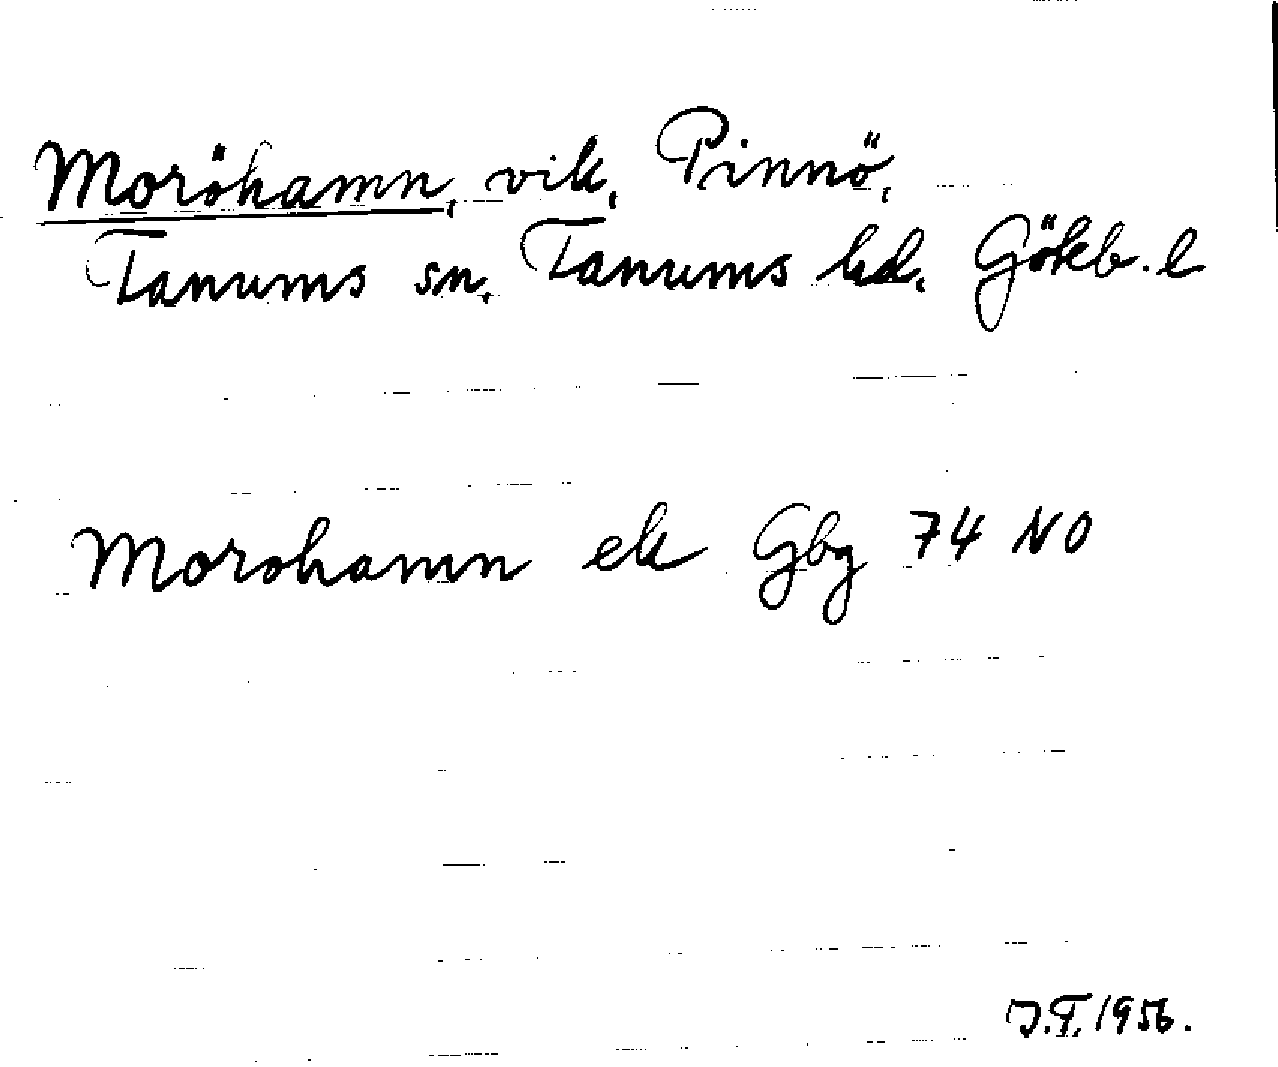 Moröhamn, vik, Pinnö,
Tanums sn. Tanums hd. Göteb. l
Morohamn ek Gbg 74 NO
J.F. 1956.